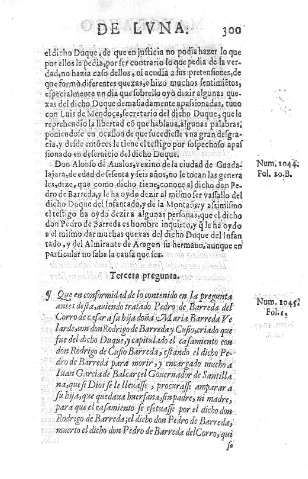 DE LVNA. 300
el dicho Duque, de que en justicia no podia hazer lo que
por ellos le pedia, por ser contrario lo que pedia de la ver-
dad, no hazia caso dellos, ni acodia a sus pretensiones, de
que formò diferentes quexas, e hizo muchos sentimiẽtos,
especialmente un dia que sobre lo oyò dezir algunas que-
xas del dicho Duque demasiadamente apasionadas, tuuo
con Luis de Mendoça, secretario del dicho Duque, que la
reprehendiò la libertad cõ que hablaua, algunas palabras,
poniendose en ocasion de que sucediesse vna gran desgra-
cia, y desde entonces le tiene el testigo por sospechoso apas-
sionado en deseruicio del dicho Duque.
Don Alonso de Aualos, vezino de la ciudad de Guada-
laxara, de edad de setenta y seis años, no le tocan las genera-
les, dize, que como dicho tiene, conoce al dicho don Pe-
dro de Barreda, y le ha oydo dezir al mismo ser vassallo del
dicho Duque del Infantado, y de la Montaña: y al mismo
el testigo ha oydo dezir a algunas personas, que el dicho
don Pedro de Barreda es hombre inquieto, y q̃ le ha oydo
al mismo dar muchas quexas del dicho Duque del Infan-
tado, y del Almirante de Aragon su hermano, aunque en
particular no sabe la causa que sea.
Num. 1044.
Fol. 20.B.
Tercera pregunta.
¶ Que en conformidad de lo contenido en la pregunta
antes desta, auiendo tratado Pedro de Barreda del
Corro de casar a su hija doña Maria Barreda Ve-
larde, con don Rodrigo de Barreda y Cusio, criado que
fue del dicho Duque, y capitulado el casamiento con
don Rodrigo de Cusio Barreda, estando el dicho Pe-
dro de Barreda para morir, y encargado mucho a
Iuan Garcia de Balcarcel Gouernador de Santilla-
na, que si Dios se le lleuasse, procurasse amparar a
su hija, que quedaua huerfana, sin padre, ni madre,
para que el casamiento se efetuasse por el dicho don
Rodrigo de Barreda; el dicho don Pedro de Barreda,
muerto el dicho don Pedro de Barreda del Corro, qui
so
Num. 1045.
Fol. 1.